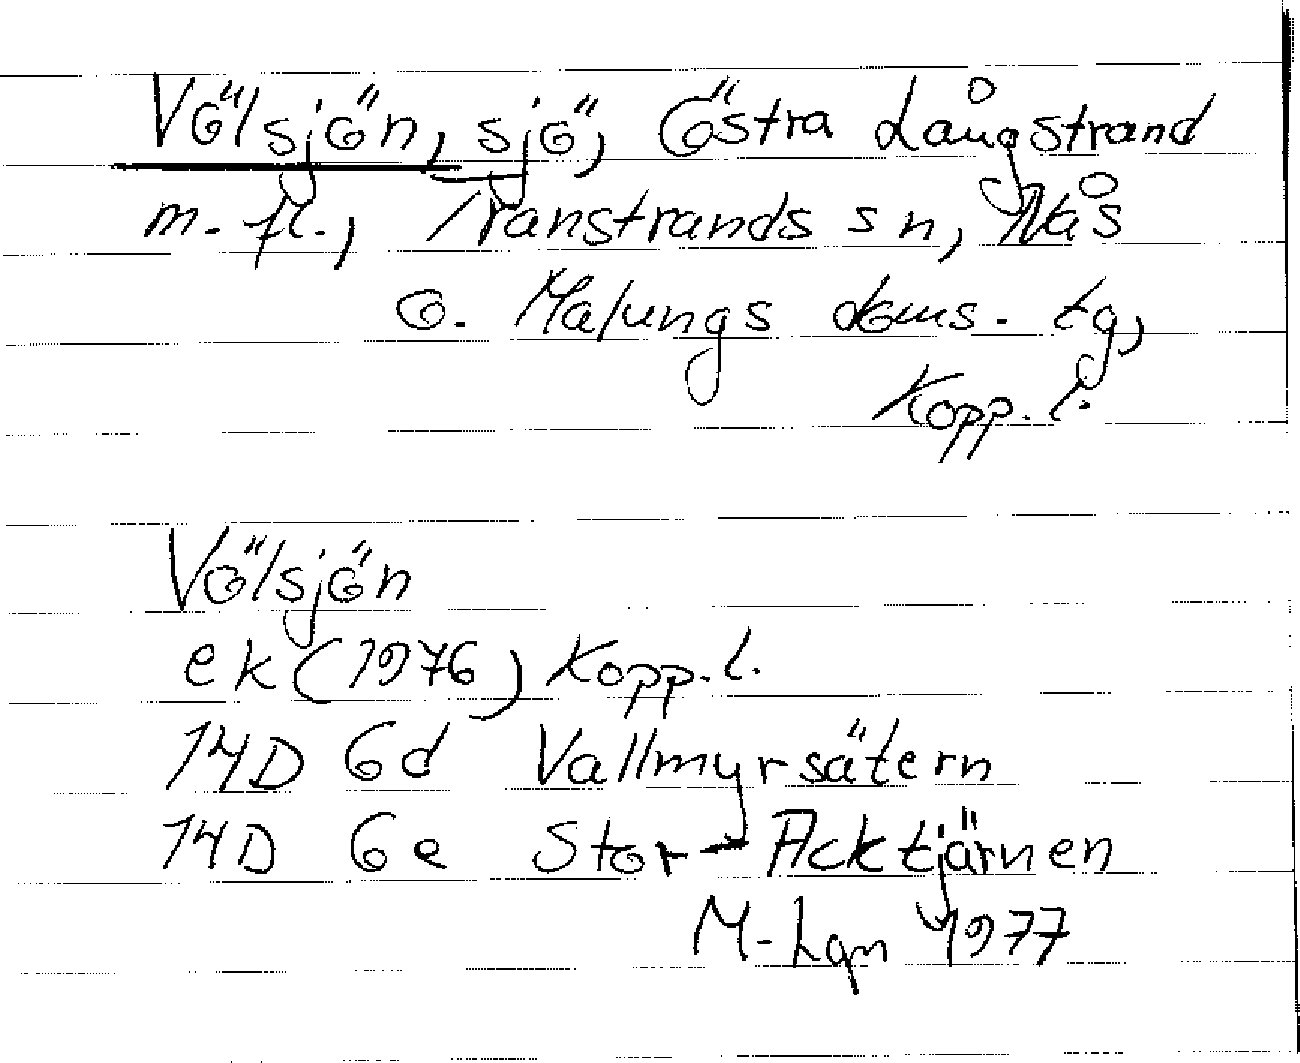 Völsjön, sjö, Östra Långstrand
m. fl., Transtrands sn, Nås
o. Malungs doms. tg,
Kopp. l.
Völsjön
ek (1976) Kopp. l.
14D 6d Vallmyrsätern
14D 6e Stor-Acktjärnen
M-Lgn 1977